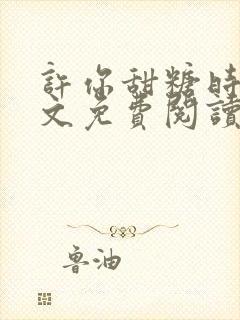 許你甜糖時
文免費閱讀
魯油